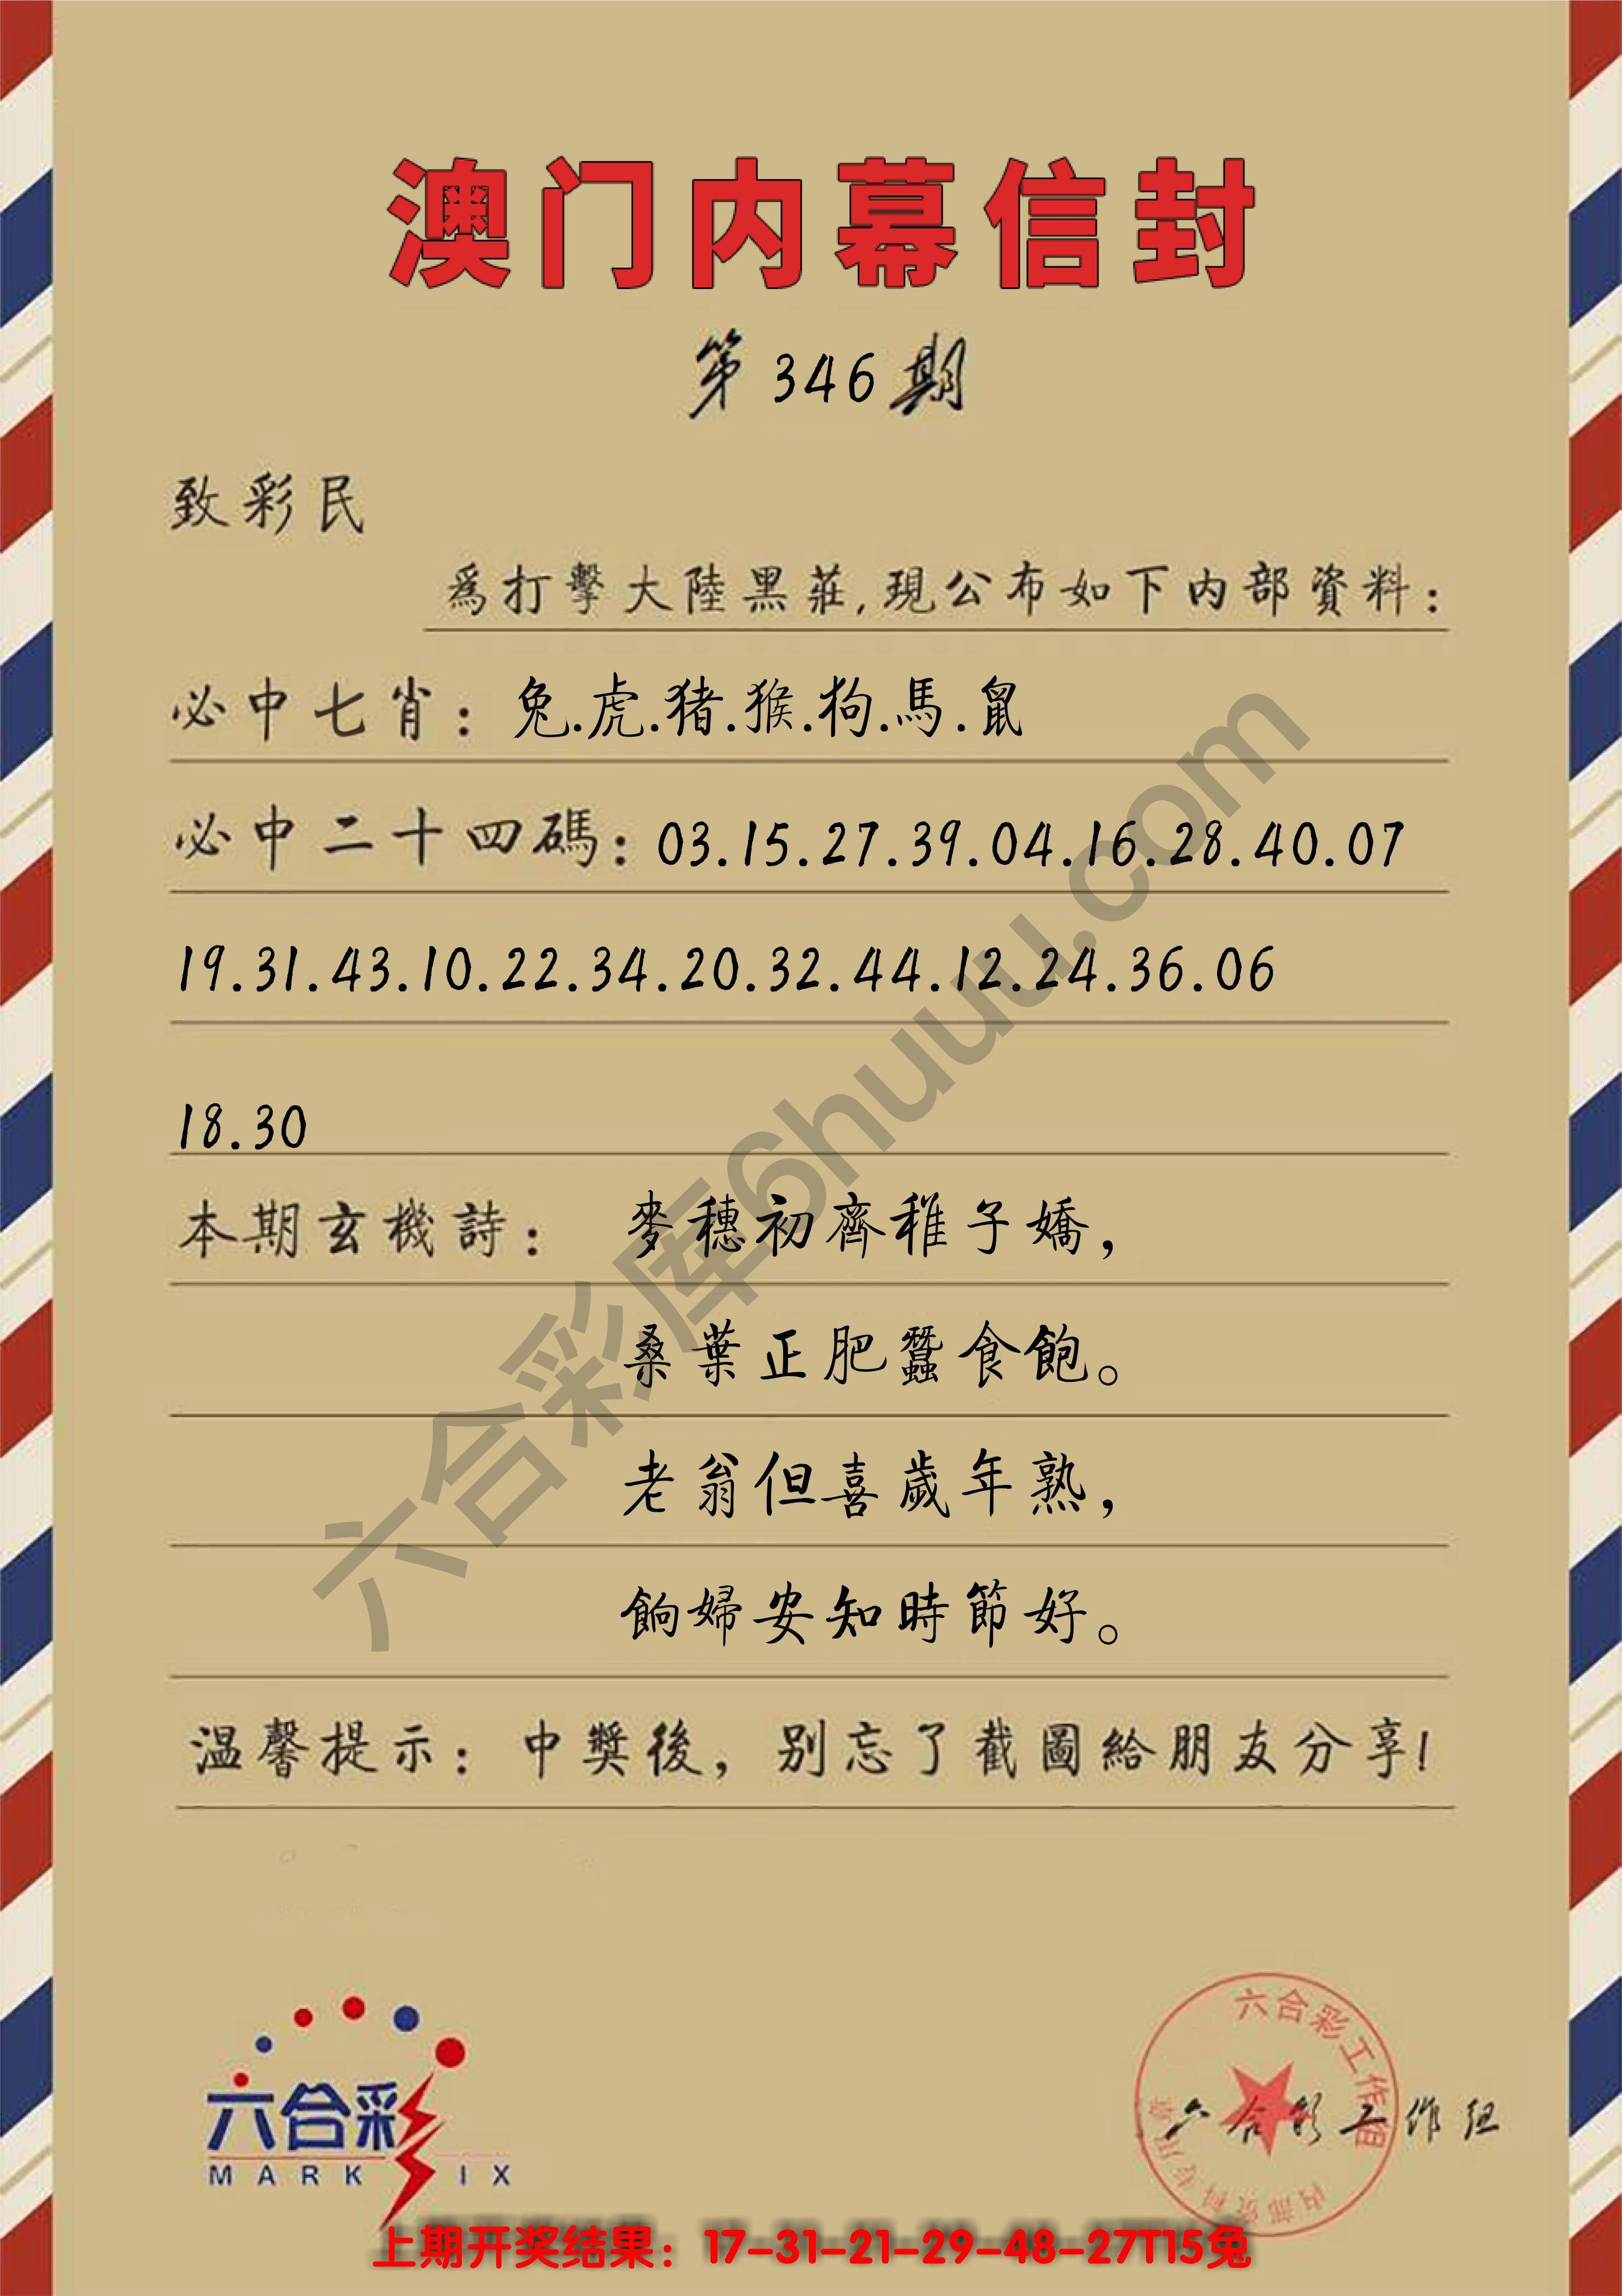 澳门内幕信封
第346期
致彩民
爲打擊大陸黑莊,現公布如下内部資料:
必中七肖: 兔.虎.猪.猴.狗.馬.鼠
必中二十四碼: 03.15.27.39.04.16.28.40.07
19.31.43.10.22.34.20.32.44.12.24.36.06
18.30
本期玄機詩: 麥穗初齊稚子嬌,
桑葉正肥蠶食飽。
老翁但喜歲年熟,
餉婦安知時節好。
温馨提示: 中獎後, 别忘了截圖給朋友分享!
六合彩库6huuu.com
六合彩
MARK IX
六合彩工作组
六合彩工作组
上期开奖结果: 17-31-21-29-48-27T15兔